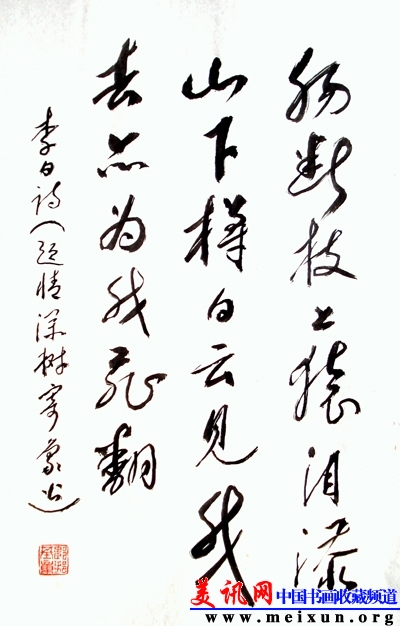 肠断枝上猿泪添
山下樽白云见我
去亦为我飞翻
李白诗《题情深树寄象公》
美讯网 中国书画收藏频道
www.meixun.org